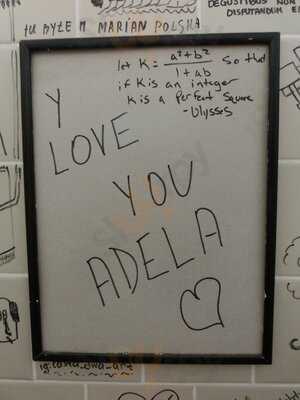 tu byłem MARIAN POLSKA
DEGUSTIBUS NON
DISPUTANDUM E
let K = a²+b² / 1+ab so that
if K is an integer
K is a Perfect Square
-Ulysses
Y
LOVE
YOU
ADELA